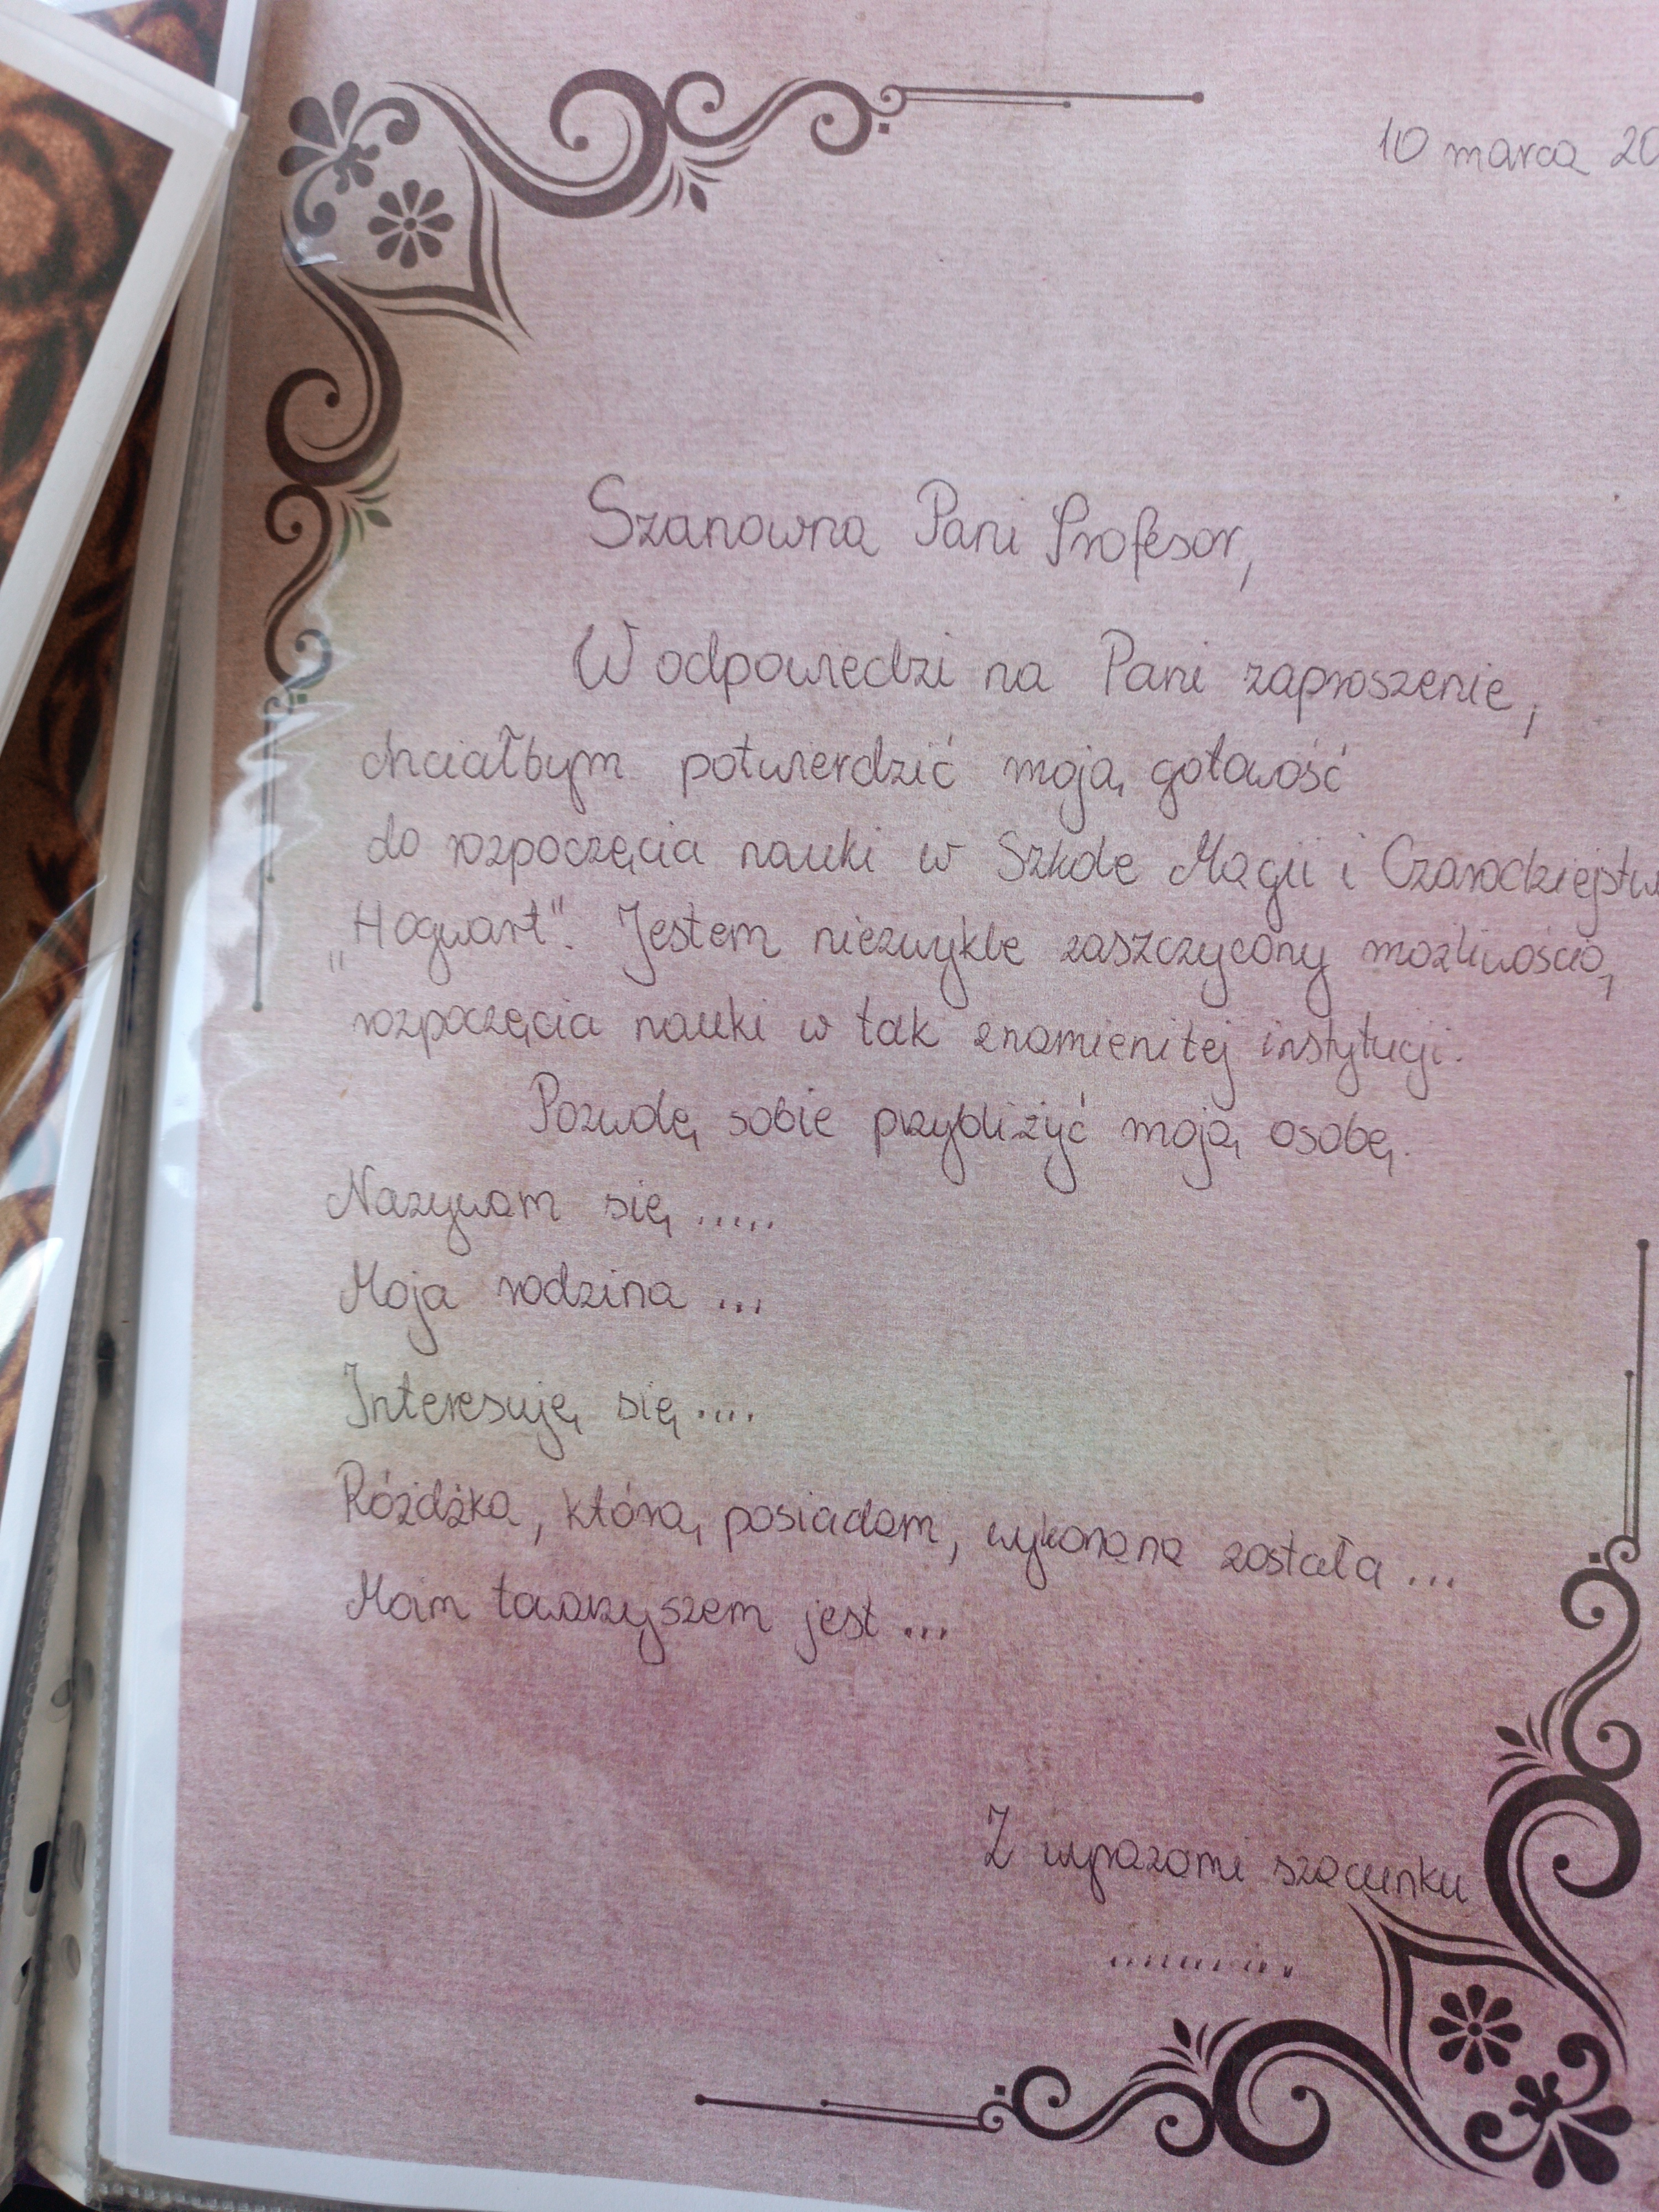 10 marca 20
Szanowna Pani Profesor,
W odpowiedzi na Pani zaproszenie,
chciałbym potwierdzić moją gotowość
do rozpoczęcia nauki w Szkole Magii i Czarodziejstw
„Hogwart". Jestem niezwykle zaszczycony możliwością
rozpoczęcia nauki w tak znamienitej instytucji.
Pozwolę sobie przybliżyć moją osobę.
Nazywam się .....
Moja rodzina ...
Interesuję się ....
Różdżka, którą posiadam, wykonana została ...
Moim towarzyszem jest ...
Z wyrazami szacunku
..........